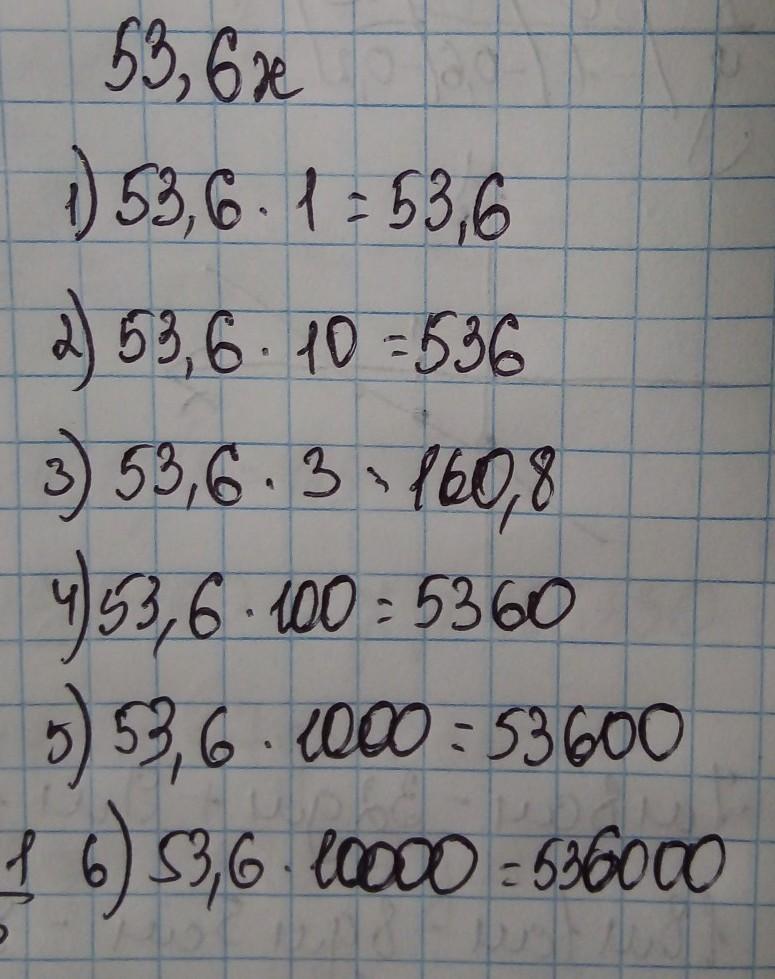 53,6x
1) 53,6 · 1 = 53,6
2) 53,6 · 10 = 536
3) 53,6 · 3 = 160,8
4) 53,6 · 100 = 5360
5) 53,6 · 1000 = 53600
1 6) 53,6 · 10000 = 536000